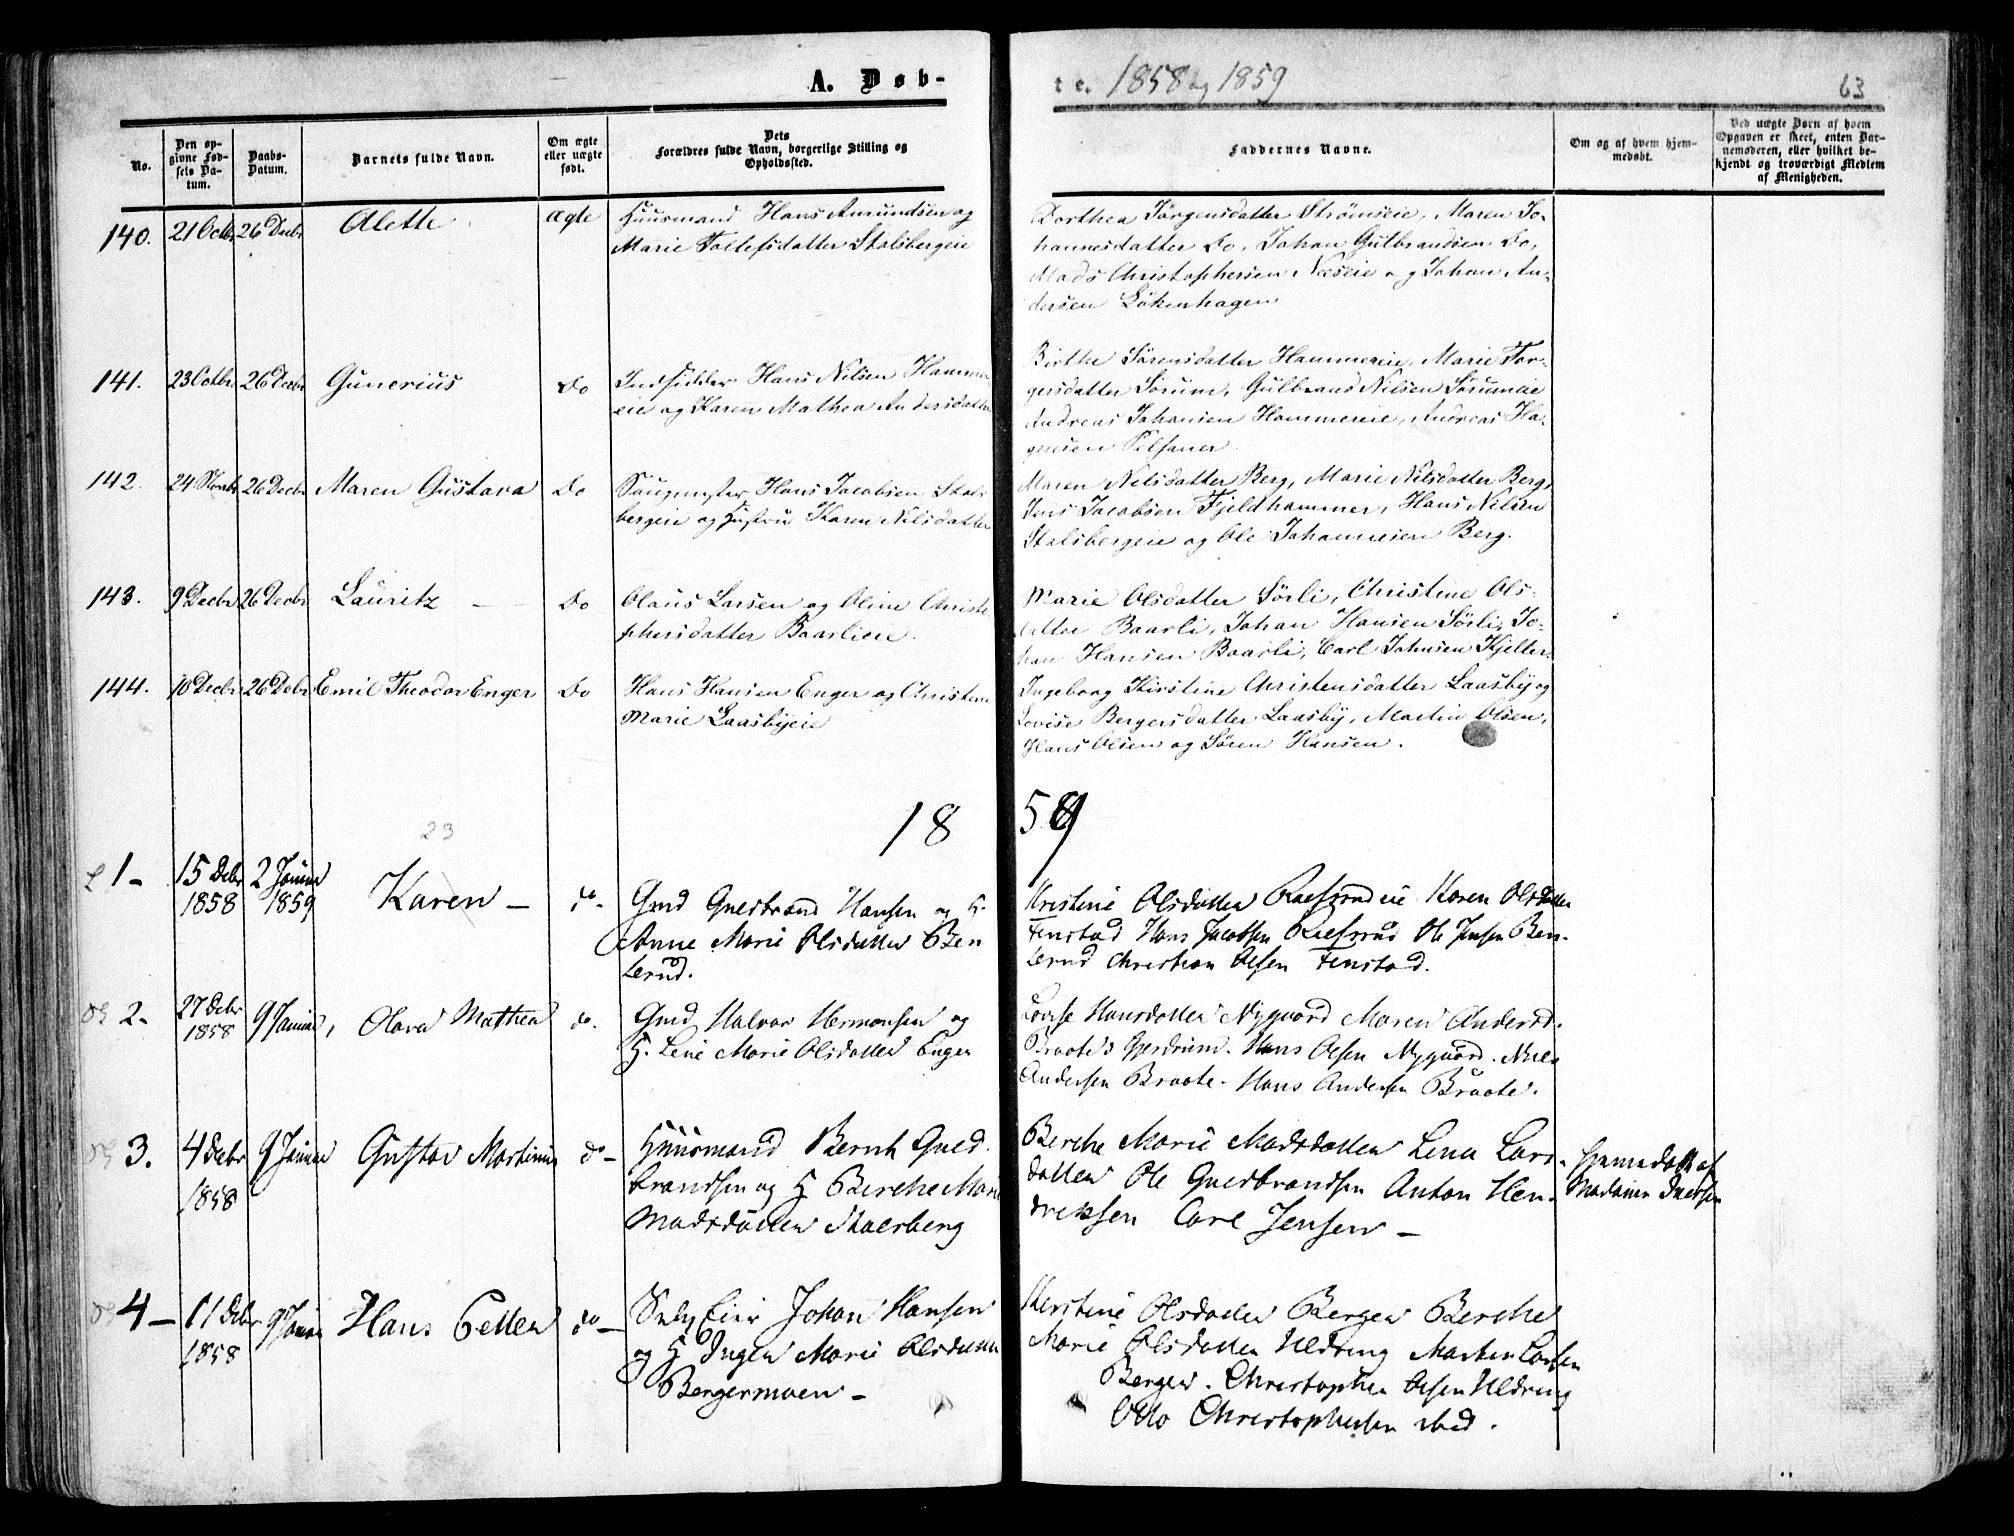 A. Døb-
te. 1858 og 1859
63
No.
Den op-
givne Fød-
sels Da-
tum.
Daabs-
Datum.
Barnets fulde Navn.
Om ægte
eller uægte
født.
Dets
Forældres fulde Navn, borgerlige Stilling og
Opholdssted.
Faddernes Navne.
Om og af hvem hjem-
medøbt.
Ved uægte Børn af hvem
Opgaven er skeet, enten Bar-
nemoderen, eller hvilket be-
kjendt og troværdigt Medlem
af Menigheden.
140. 21 Octbr 26 Decbr Alette ægte Huusmand Hans Amundsen og
Marie Tollefsdatter Stalsbergeie
Dorthea Jörgensdatter Strömseie, Maren Jo-
hannesdatter Do, Johan Gulbrandsen Do,
Mads Christophersen Næseie og Johan An-
dersen Lökenhagen
141. 23 Octbr 26 Decbr Gunerius Do Indsidder Hans Nilsen Hammer
eie og Karen Mathea Andersdatter
Birthe Sörensdatter Hammereie, Marie Tor-
gersdatter Sörum, Gulbrand Nilsen Sörumeie
Andreas Johansen Hammereie, Andreas Ha-
gensen
142. 24 Novbr 26 Decbr Maren Gustava Do Saugmester Hans Jacobsen Stals
bergeie og Hustru Karen Nilsdatter
Maren Nilsdatter Berg, Marie Nilsdatter Berg,
Jens Jacobsen Fjeldhammer, Hans Nilsen
Stalsbergeie og Ole Johannesen Berg.
143. 9 Decbr 26 Decbr Lauritz — Do Olaus Larsen og Oline Christo
phersdatter Baarlieie.
Marie Olsdatter Sörli, Christine Ols-
datter Baarli, Johan Hansen Sörli, Jo-
han Hansen Baarli, Carl Johnsen Kjelter
144. 10 Decbr 26 Debr Emil Theodor Enger Do Hans Hansen Enger og Christine
Marie Laasbyeie
Ingeborg Kirstine Christensdatter Laasby og
Lovise Bergersdatter Laasby, Martin Olsen,
Hans Olsen og Sören Hansen.
1859
23
1 - 15 Debr 2 Januar
1858 1859
Karen — do- Gmd Guldbrand Hansen og H.
Anne Marie Olsdatter Ben
terud.
Kristine Olsdatter Karen Olsdatter
Fenstad Hans Jacobsen Ole Jensen Ben-
terud Christian Olsen Fenstad.
2- 27 Debr 9 Januar, Olava Mathea do. Gmd Halvor Hermansen og
1858
H. Lene Marie Olsdatter Enger
Lovise Hansdatter Nygaard Maren Andersd.
Braate Gjerdrum. Hans Olsen Nygaard. Niels
Andersen Braate. Hans Andersen Braate.
3. 4 Debr 9 Januar Gustav Martinus do- Huusmand Bernt Guld-
1858
brandsen og H Berthe Marie
Madsdatter Stalsberg
Berthe Marie Madsdatter Lena Lars-
datter Ole Guldbrandsen Anton Hen-
driksen Carl Jensen —
hjemmedøbt af
Madame
4 - 11 Debr 9 Januar Hans Petter do- Selv Eier Johan Hansen
1858
og H Inger Marie Olsdatter
Bergermoen —
Kerstine Olsdatter Berger Berthe
Marie Olsdatter Uldring Martin Larsen
Berger. Christopher Olsen Uldring
Otto Christophersen ibid.